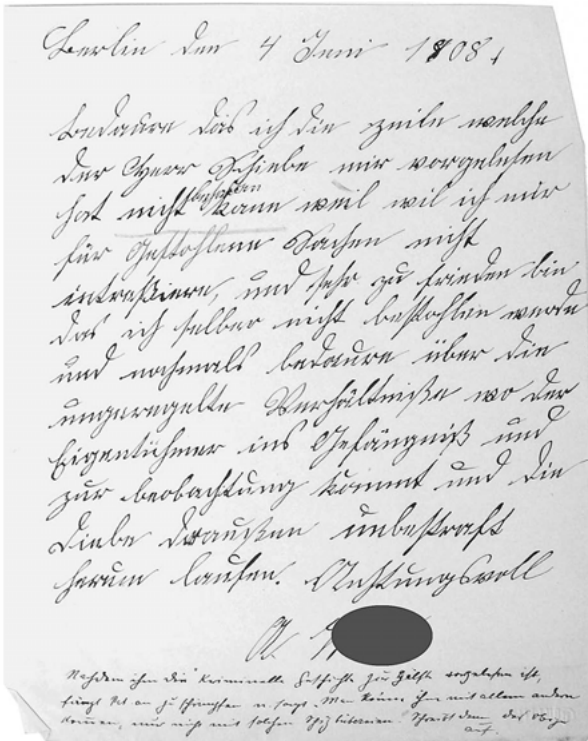 Berlin den 4 Juni 1908.
bedaure das ich die zeile welche
der Herr Schiebe mir vorgelesen
hat nicht kann weil wil ich mir
für Gestohlene Sachen nicht
intreßiere, und sehr zu frieden bin
das ich selber nicht bestohlen werde
und nochmals bedaure über die
ungeregelte Verhältniße wo der
Eigentühmer ins Gefängniß und
zur beobachtung kommt und die
Diebe draußen unbestraft
herum laufen. Achtungsvoll
A.
Nachdem ihm die Kriminelle Geschichte zur Hälfte vorgelesen ist,
fängt Pat an zu schimpfen u. sagt: Man könne ihm mit allem andern
kommen, nur nicht mit solchen Spitzbübereien. Schreibt dann das Obige
auf.